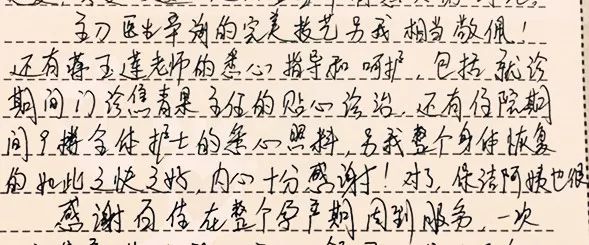 主刀医生辛翔的完美技艺另我相当敬佩！
还有薛玉莲老师的悉心指导和呵护，包括就诊
期间门诊焦青果主任的贴心诊治，还有住院期
间9楼全体护士的悉心照料，另我整个身体恢复
的如此之快之好，内心十分感谢！对了，保洁阿姨也很
感谢百佳在整个孕产期周到服务，一次